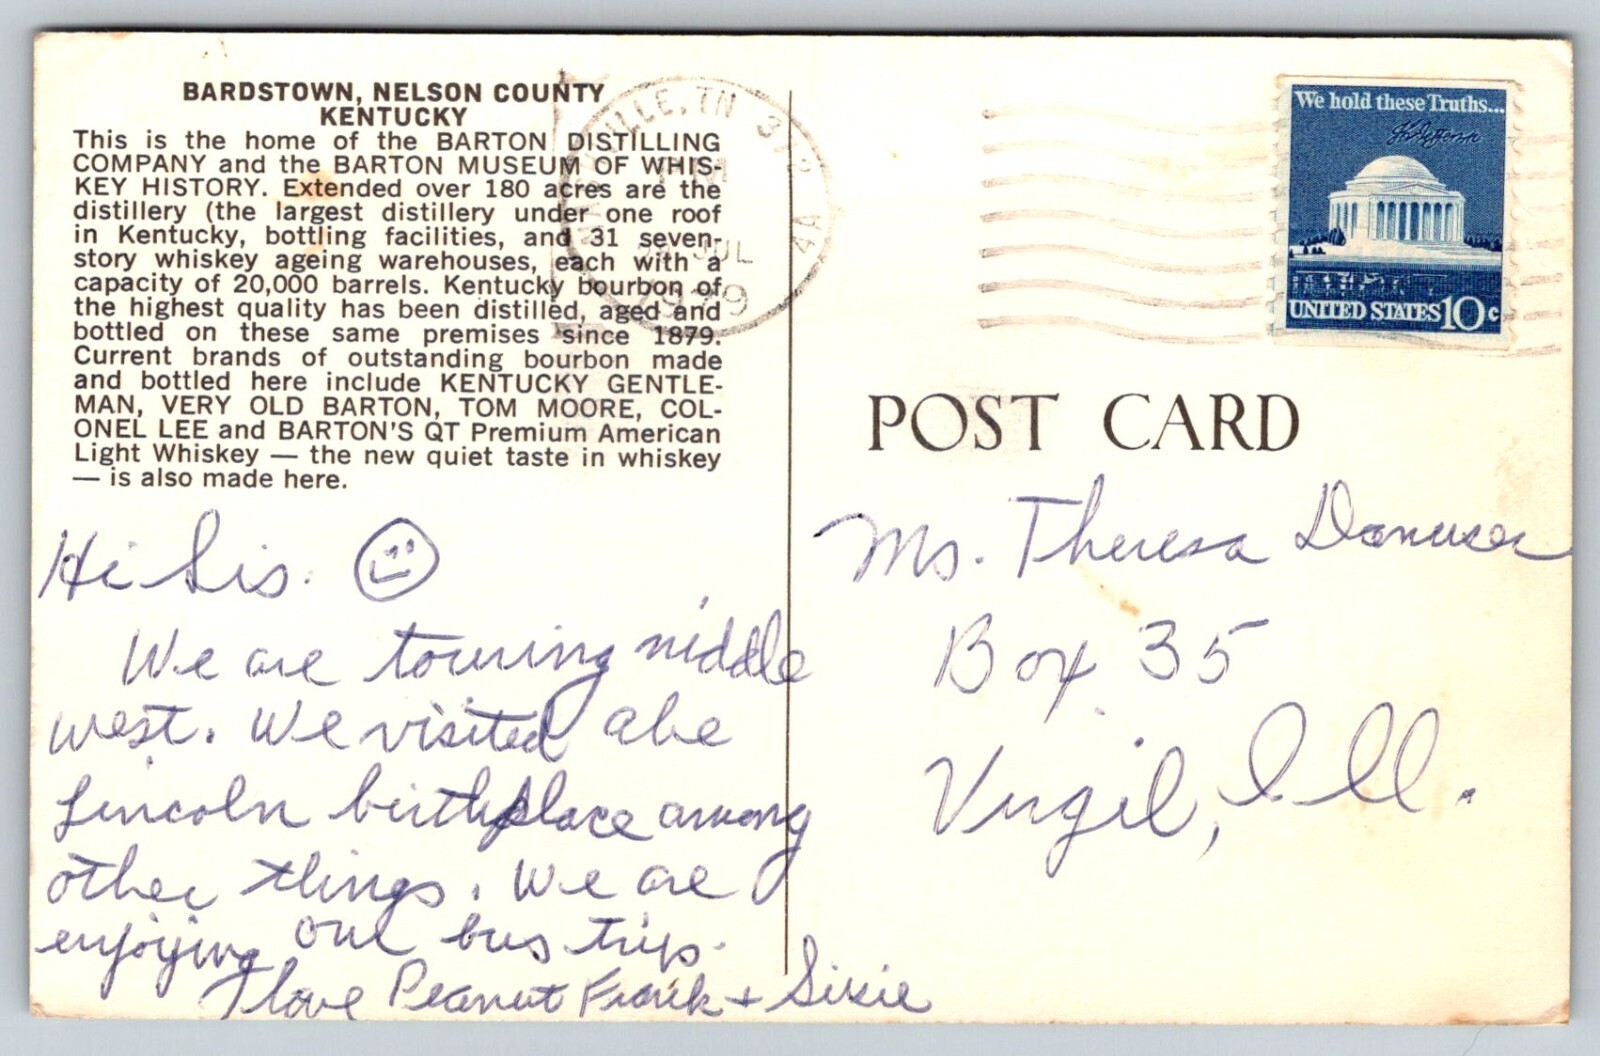 BARDSTOWN, NELSON COUNTY
KENTUCKY
This is the home of the BARTON DISTILLING
COMPANY and the BARTON MUSEUM OF WHIS-
KEY HISTORY. Extended over 180 acres are the
distillery (the largest distillery under one roof
in Kentucky, bottling facilities, and 31 seven-
story whiskey ageing warehouses, each with a
capacity of 20,000 barrels. Kentucky bourbon of
the highest quality has been distilled, aged and
bottled on these same premises since 1879.
Current brands of outstanding bourbon made
and bottled here include KENTUCKY GENTLE-
MAN, VERY OLD BARTON, TOM MOORE, COL-
ONEL LEE and BARTON'S QT Premium American
Light Whiskey — the new quiet taste in whiskey
— is also made here.
Hi Sis.
We are touring middle
west. We visited abe
Lincoln birthplace among
other things. We are
enjoying our bus trip.
Love Peanut Frank + Susie
TN 372
PM
JUL
1979
We hold these Truths...
UNITED STATES 10c
POST CARD
Ms. Theresa
Box 35
Virgil, Ill.